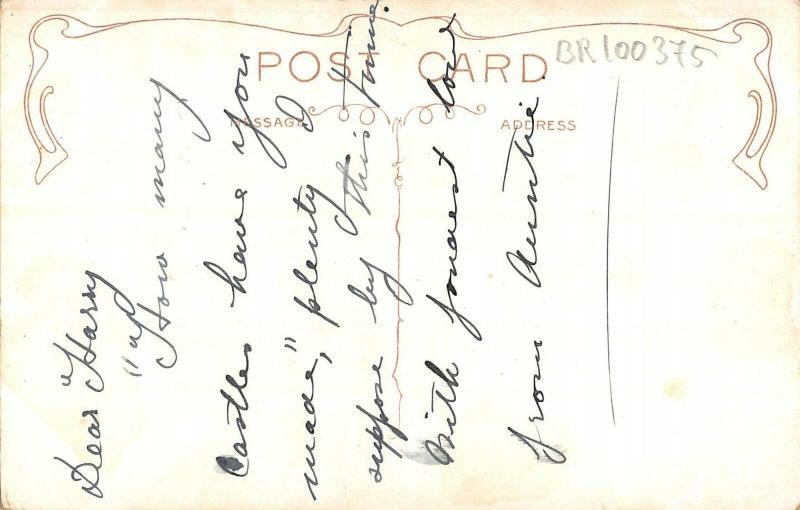 POST CARD
BR100375
MESSAGE
ADDRESS
Dear "Harry
"How many
Castles have you
made," plenty I
suppose by this time.
With fondest love
from Auntie.